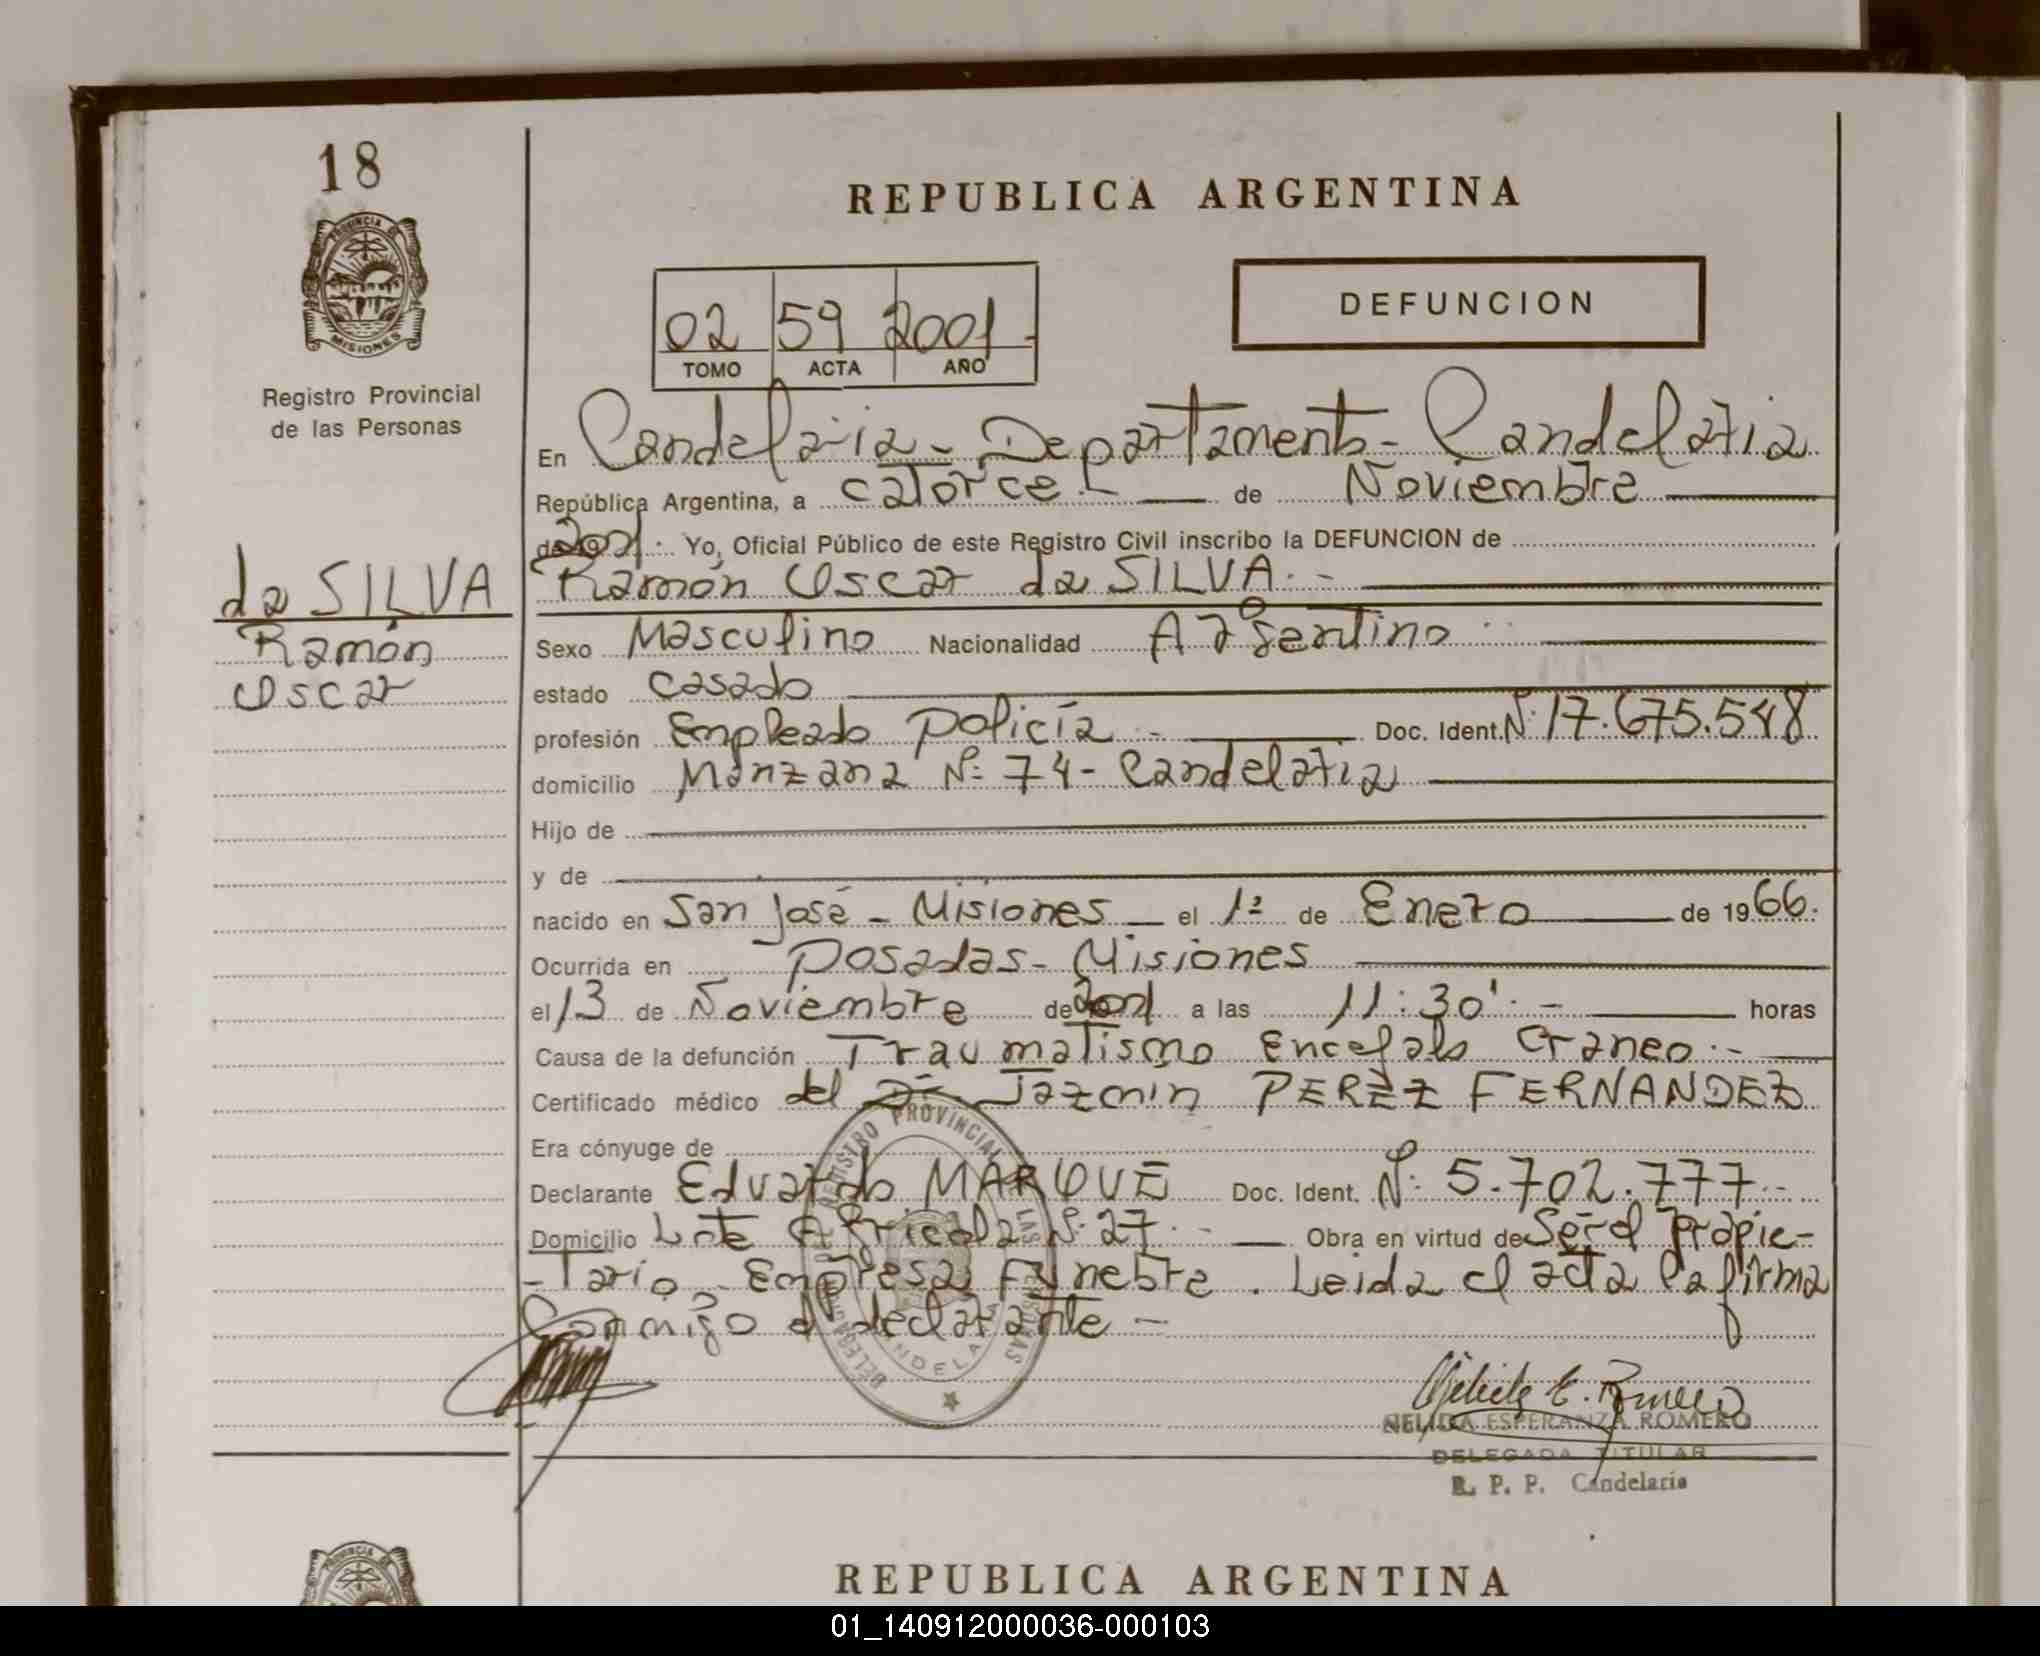 18
PROVINCIA DE
MISIONES
Registro Provincial
de las Personas
da SILVA
Ramón
Oscar
REPUBLICA ARGENTINA
02 59 2001.-
TOMO ACTA AÑO
DEFUNCION
En Candelaria - Departamento - Candelaria
República Argentina, a catorce.- de Noviembre
de 2001. Yo, Oficial Público de este Registro Civil inscribo la DEFUNCION de
Ramón Oscar da SILVA.-
Sexo Masculino Nacionalidad Argentino
estado casado
profesión Empleado Policía.- Doc. Ident. Nº 17.675.548
domicilio Manzana Nº 74 - Candelaria
Hijo de
y de
nacido en San José - Misiones el 1º de Enero de 1966.
Ocurrida en Posadas - Misiones
el 13 de Noviembre de 2001 a las 11:30'.- horas
Causa de la defunción Traumatismo Encefalo Craneo.-
Certificado médico del Dr. Jazmín PEREZ FERNANDEZ
Era cónyuge de
Declarante Eduardo MARQUE Doc. Ident. Nº 5.702.777.-
Domicilio Lote Agricola Nº 27.- Obra en virtud de Ser el propie-
-tario Empresa Funebre. Leida el acta la firma
Conmigo el declarante -
REGISTRO PROVINCIAL DE LAS PERSONAS
Nélida E. Romero
NELIDA ESPERANZA ROMERO
DELEGADA TITULAR
R. P. P. Candelaria
REPUBLICA ARGENTINA
PROVINCIA DE
01_140912000036-000103